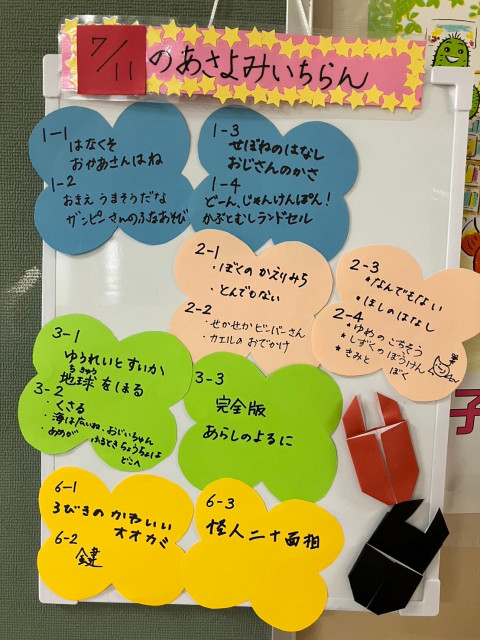 7/11 のあさよみいちらん
1-1
はなくそ
おかあさんはね
1-2
おまえ うまそうだな
ガンピーさんのふなあそび
1-3
せぼねのはなし
おじさんのかさ
1-4
どーん、じゃんけんぽん!
かぶとむしランドセル
2-1
・ぼくの かえりみち
・とんでもない
2-2
・せかせかビーバーさん
・カエルのおでかけ
2-3
*なんでもない
*ほしのはなし
2-4
*ゆめのごちそう
*しずくのぼうけん
*きみとぼく
3-1
ゆうれいとすいか
ちきゅう
地球をほる
3-2
・くさる
・海は広いね、おじいちゃん
・あめがふるときちょうちょはどこへ
3-3
完全版
あらしのよるに
6-1
3びきのかわいい
オオカミ
6-2
鍵
6-3
怪人二十面相